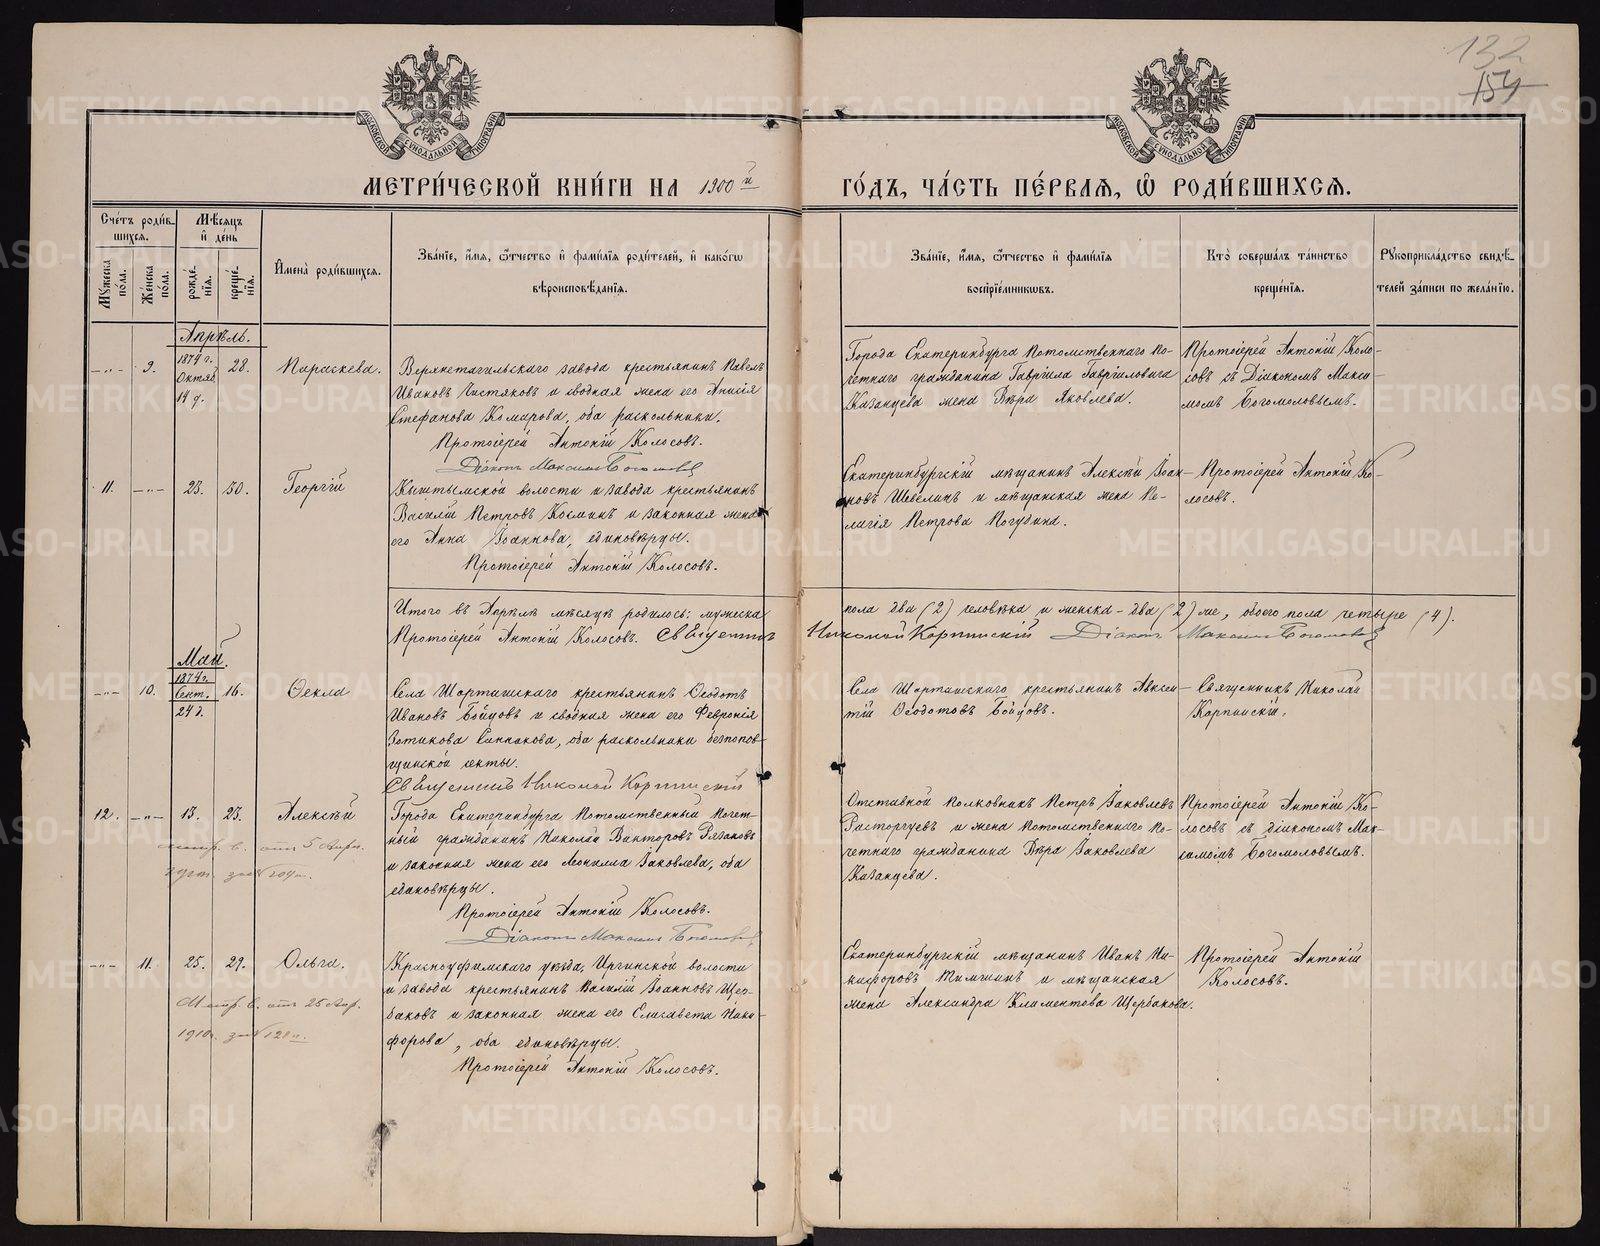 132
154
МОСКОВСКОЙ СУНОДАЛЬНОЙ ТИПОГРАФІИ
МОСКОВСКОЙ СУНОДАЛЬНОЙ ТИПОГРАФІИ
МЕТРИ́ЧЕСКОЙ КНИ́ГИ НА 1900й ГО́ДЪ, ЧА́СТЬ ПЕ́РВАѦ, Ѡ҆ РОДИ́ВШИХСѦ.
Сче́тъ роди́в-
шихсѧ.
Мѣ́сѧцъ
и҆ де́нь
Мꙋ́жеска
по́ла.
Же́нска
по́ла.
рожде́-
нїѧ.
креще́-
нїѧ.
И҆мена̀ роди́вшихсѧ.
Зва́нїе, и҆́мѧ, ѻ҆́тчество и҆ фами́лїѧ роди́телей, и҆ како́гѡ
вѣроисповѣ́данїѧ.
Зва́нїе, и҆́мѧ, ѻ҆́тчество и҆ фами́лїѧ
воспрїе́мникѡвъ.
Кто̀ соверша́лъ та́инство
креще́нїѧ.
Рꙋкоприкла́дство свидѣ́-
телей за́писи по жела́нїю.
Апрѣль.
—"— 9. 1874 г.
Октяб.
14 д.
28. Параскева.
Верхнетагильскаго завода крестьянинъ Павелъ
Ивановъ Чистяковъ и сводная жена его Анисія
Стефанова Комарова, оба раскольники.
Протоіерей Антоній Колосовъ.
Діаконъ Максимъ Богомоловъ
Города Екатеринбурга Потомственнаго По-
четнаго гражданина Гавріила Гавриловича
Казанцева жена Вѣра Яковлева.
Протоіерей Антоній Коло-
совъ съ Діакономъ Макси-
момъ Богомоловымъ.
11. —"— 23. 30. Георгій
Кыштымской волости и завода крестьянинъ
Василій Петровъ Косминъ и законная жена
его Анна Іоаннова, единовѣрцы.
Протоіерей Антоній Колосовъ.
Екатеринбургскій мѣщанинъ Алексѣй Іоан-
новъ Шевелинъ и мѣщанская жена Пе-
лагія Петрова Погудина.
Протоіерей Антоній Ко-
лосовъ.
Итого въ Апрѣлѣ мѣсяцѣ родилось: мужеска пола два (2) человѣка и женска - два (2) же, обоего пола четыре (4).
Протоіерей Антоній Колосовъ. Священникъ Николай Корпинскій Діаконъ Максимъ Богомоловъ
Май.
—"— 10. 1874 г.
Сент.
24 д.
16. Ѳекла
Села Шарташскаго крестьянинъ Ѳеодотъ
Ивановъ Бойцовъ и сводная жена его Февронія
Зотикова, оба раскольники безпопов-
щинской секты.
Священникъ Николай Корпинскій
Села Шарташскаго крестьянинъ Авксен-
тій Ѳеодотовъ Бойцовъ.
Священникъ Николай
Корпинскій.
12. —"— 13. 23. Алексѣй
метр. в. отъ 5 Апр.
за №
Города Екатеринбурга Потомственный Почет-
ный гражданинъ Николай Викторовъ Рязановъ
и законная жена его Леонилла Іаковлева, оба
единовѣрцы.
Протоіерей Антоній Колосовъ.
Діаконъ Максимъ Богомоловъ
Отставной полковникъ Петръ Іаковлевъ
Расторгуевъ и жена потомственнаго по-
четнаго гражданина Вѣра Іаковлева
Казанцева.
Протоіерей Антоній Ко-
лосовъ съ діакономъ Мак-
симомъ Богомоловымъ.
—"— 11. 25. 29. Ольга.
Метр. в. отъ 25 Апр.
1910 г. за №
Красноуфимскаго уѣзда, Иргинской волости
и завода крестьянинъ Василій Іоанновъ Щер-
баковъ и законная жена его Елисавета Ники-
форова, оба единовѣрцы.
Протоіерей Антоній Колосовъ.
Екатеринбургскій мѣщанинъ Иванъ Ни-
кифоровъ и мѣщанская
жена Александра Климентова Щербакова.
Протоіерей Антоній
Колосовъ.
METRIKI.GASO-URAL.RU